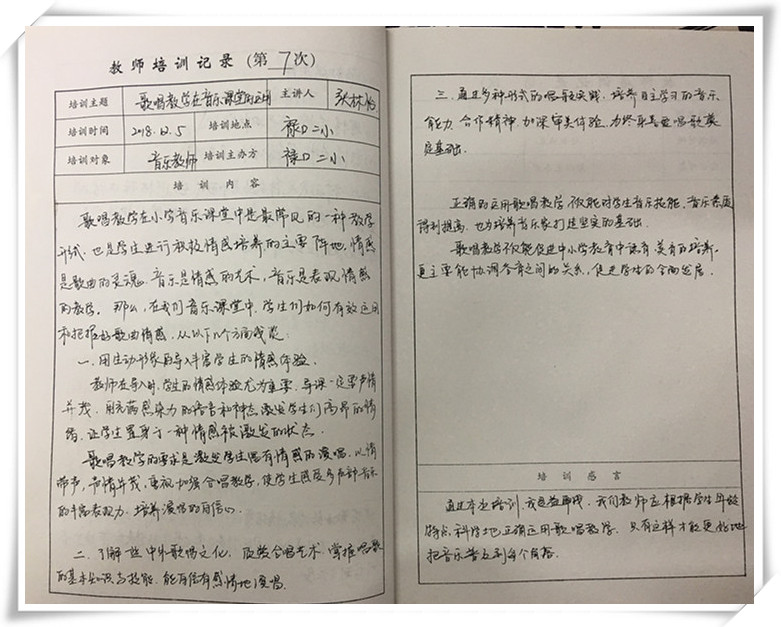 教师培训记录（第7次）
培训主题 歌唱教学在音乐课堂的运用 主讲人 张林怡
培训时间 2018.12.5 培训地点 禄口二小
培训对象 音乐教师 培训主办方 禄口二小
培训内容
歌唱教学在小学音乐课堂中是最常见的一种教学
形式，也是学生进行积极情感培养的主要阵地，情感
是歌曲的灵魂。音乐是情感的艺术，音乐是表现情感
的教学。那么，在我们音乐课堂中，学生们如何有效运用
和把握好歌曲情感，从以下几个方面浅谈：
一、用生动形象的导入丰富学生的情感体验。
教师在导入时，学生的情感体验尤为重要，导课一定要声情
并茂，用充满感染力的语言和神态激发学生们高昂的情
绪，让学生置身于一种情感被激发的状态。
歌唱教学的要求是激发学生唱有情感的演唱，以情
带声，声情并茂，重视加强合唱教学，使学生感受多声部音乐
的丰富表现力，培养演唱的自信心。
二、了解些中外歌唱文化，及其合唱艺术，掌握唱歌
的基本知识与技能，能自信有感情地演唱。
三、通过多种形式的唱歌实践，培养自主学习的音乐
能力，合作精神，加深审美体验，为终身喜爱唱歌奠
定基础。
正确的运用歌唱教学，不仅能对学生音乐技能、音乐素质
得到提高，也为培养音乐家打造坚实的基础。
歌唱教学不仅能促进中小学教育中课有美育的培养，
更主要能协调各育之间的关系，促进学生的全面发展。
培训感言
通过本次培训，我受益匪浅，我们教师应根据学生年龄
特点，科学地、正确运用歌唱教学，只有这样才能更好地
把音乐普及到每个角落。